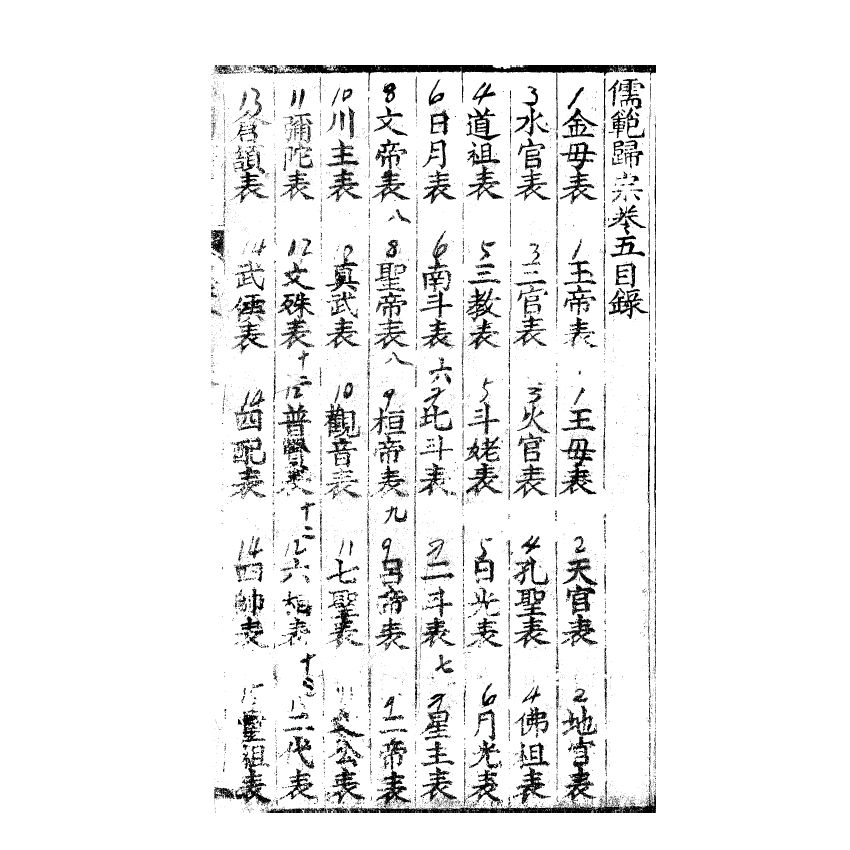 儒範歸宗卷五目錄
1金母表 1玉帝表 1王母表 2天官表 2地官表
3水官表 3三官表 3火官表 4孔聖表 4佛祖表
4道祖表 5三教表 5斗姥表 5日光表 6月光表
6日月表 6南斗表六 7北斗表 7二斗表七 7星主表
8文帝表八 8聖帝表八 9桓帝表九 9呂帝表 9二帝表
10川主表 10真武表 10觀音表 11七聖表 11文公表
11彌陀表 12文殊表十二 12普賢表十二 12六祖表十三 二代表
13倉頡表 14武侯表 14四配表 14四帥表 15靈祖表